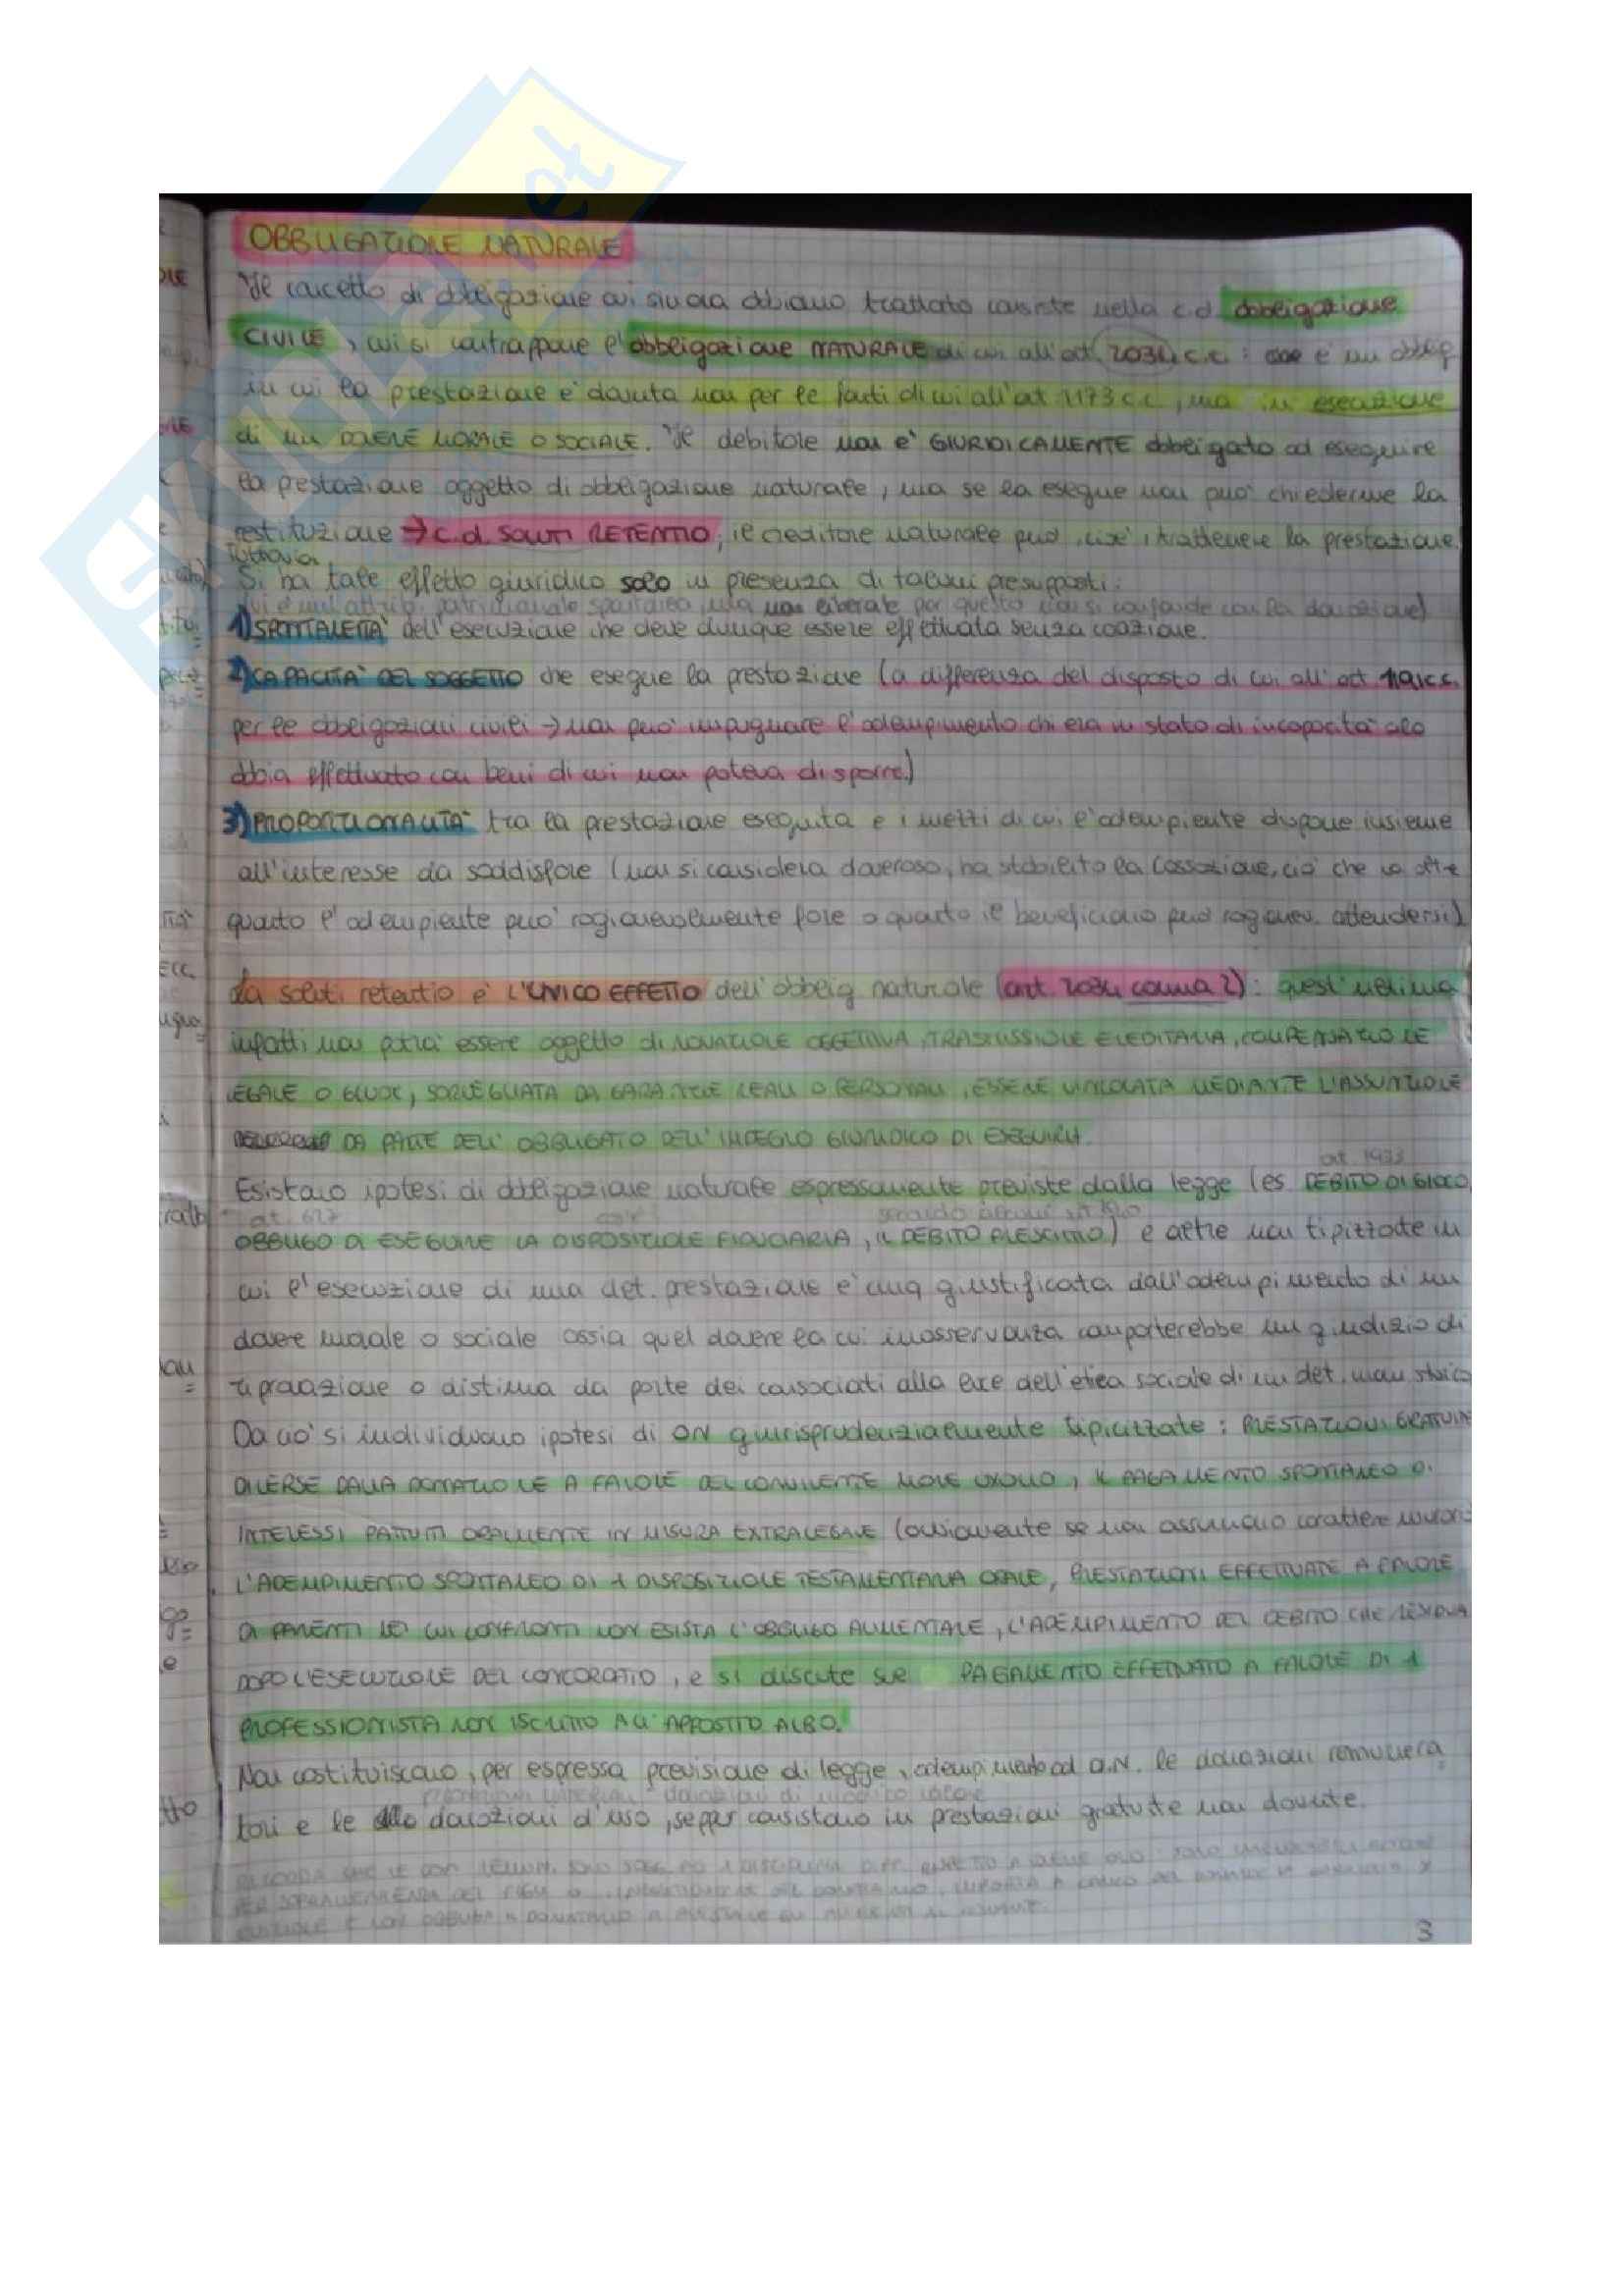 OBBLIGAZIONE NATURALE
Il concetto di obbligazione cui sinora abbiamo trattato consiste nella c.d. obbligazione
CIVILE, cui si contrappone l'obbligazione NATURALE di cui all'art. 2034 c.c.: è un obblig
in cui la prestazione è dovuta non per le fonti di cui all'art 1173 c.c, ma in esecuzione
di un DOVERE MORALE O SOCIALE. Il debitore non è GIURIDICAMENTE obbligato ad eseguire
la prestazione oggetto di obbligazione naturale, ma se la esegue non può chiederne la
restituzione → c.d. SOLUTI RETENTIO, il creditore naturale può, cioè, trattenere la prestazione.
Tuttavia
Si ha tale effetto giuridico solo in presenza di taluni presupposti:
patrimoniale spontanea, ma non liberale per questo non si confonde con la donazione)
1) SPONTANEITÀ dell'esecuzione che deve dunque essere effettuata senza coazione.
2) CAPACITÀ DEL SOGGETTO che esegue la prestazione (a differenza del disposto di cui all'art. 1191 c.c.
per le obbligazioni civili → non può impugnare l'adempimento chi era in stato di incapacità o lo
abbia effettuato con beni di cui non poteva disporre.)
3) PROPORZIONALITÀ tra la prestazione eseguita e i mezzi di cui l'adempiente dispone insieme
all'interesse da soddisfare (non si considera doveroso, ha stabilito la Cassazione, ciò che va oltre
quanto l'adempiente può ragionevolmente fare o quanto il beneficiario può ragionev. attendersi)
La soluti retentio è L'UNICO EFFETTO dell'obblig naturale (art. 2034 comma 2): quest'ultima
infatti non potrà essere oggetto di NOVAZIONE OGGETTIVA, TRASMISSIONE EREDITARIA, COMPENSAZIONE
LEGALE O GIUDIZ, SORREGLIATA DA GARANZIE REALI O PERSONALI, ESSERE VINCOLATA MEDIANTE L'ASSUNZIONE
DA PARTE DELL'OBBLIGATO DELL'IMPEGNO GIURIDICO DI ESEGUIRLA.
art. 1933
Esistono ipotesi di obbligazione naturale espressamente previste dalla legge (es DEBITO DI GIOCO,
art. 627 secondo alcuni
OBBLIGO DI ESEGUIRE LA DISPOSIZIONE FIDUCIARIA, IL DEBITO PRESCRITTO) e altre non tipizzate in
cui l'esecuzione di una det. prestazione è cmq giustificata dall'adempimento di un
dovere morale o sociale ossia quel dovere la cui inosservanza comporterebbe un giudizio di
riprovazione o distima da parte dei consociati alla luce dell'etica sociale di un det. mom storico
Da ciò si individuano ipotesi di ON giurisprudenzialmente tipicizzate: PRESTAZIONI GRATUITE
DIVERSE DALLA DONAZIONE A FAVORE DEL CONVIVENTE MORE UXORIO, IL PAGAMENTO SPONTANEO DI
INTERESSI PATTUITI ORALMENTE IN MISURA EXTRALEGALE (ovviamente se non assumono carattere
L'ADEMPIMENTO SPONTANEO DI 1 DISPOSIZIONE TESTAMENTARIA ORALE, PRESTAZIONI EFFETTUATE A FAVORE
DI PARENTI NEI CUI CONFRONTI NON ESISTA L'OBBLIGO ALIMENTARE, L'ADEMPIMENTO DEL DEBITO CHE RESIDUA
DOPO L'ESECUZIONE DEL CONCORDATO, e si discute sul PAGAMENTO EFFETTUATO A FAVORE DI 1
PROFESSIONISTA NON ISCRITTO ALL'APPOSITO ALBO.
Non costituiscono, per espressa previsione di legge, adempimento ad O.N. le donazioni remunera
donazioni di modico valore
tori e le donazioni d'uso, seppur consistano in prestazioni gratuite non dovute.
3